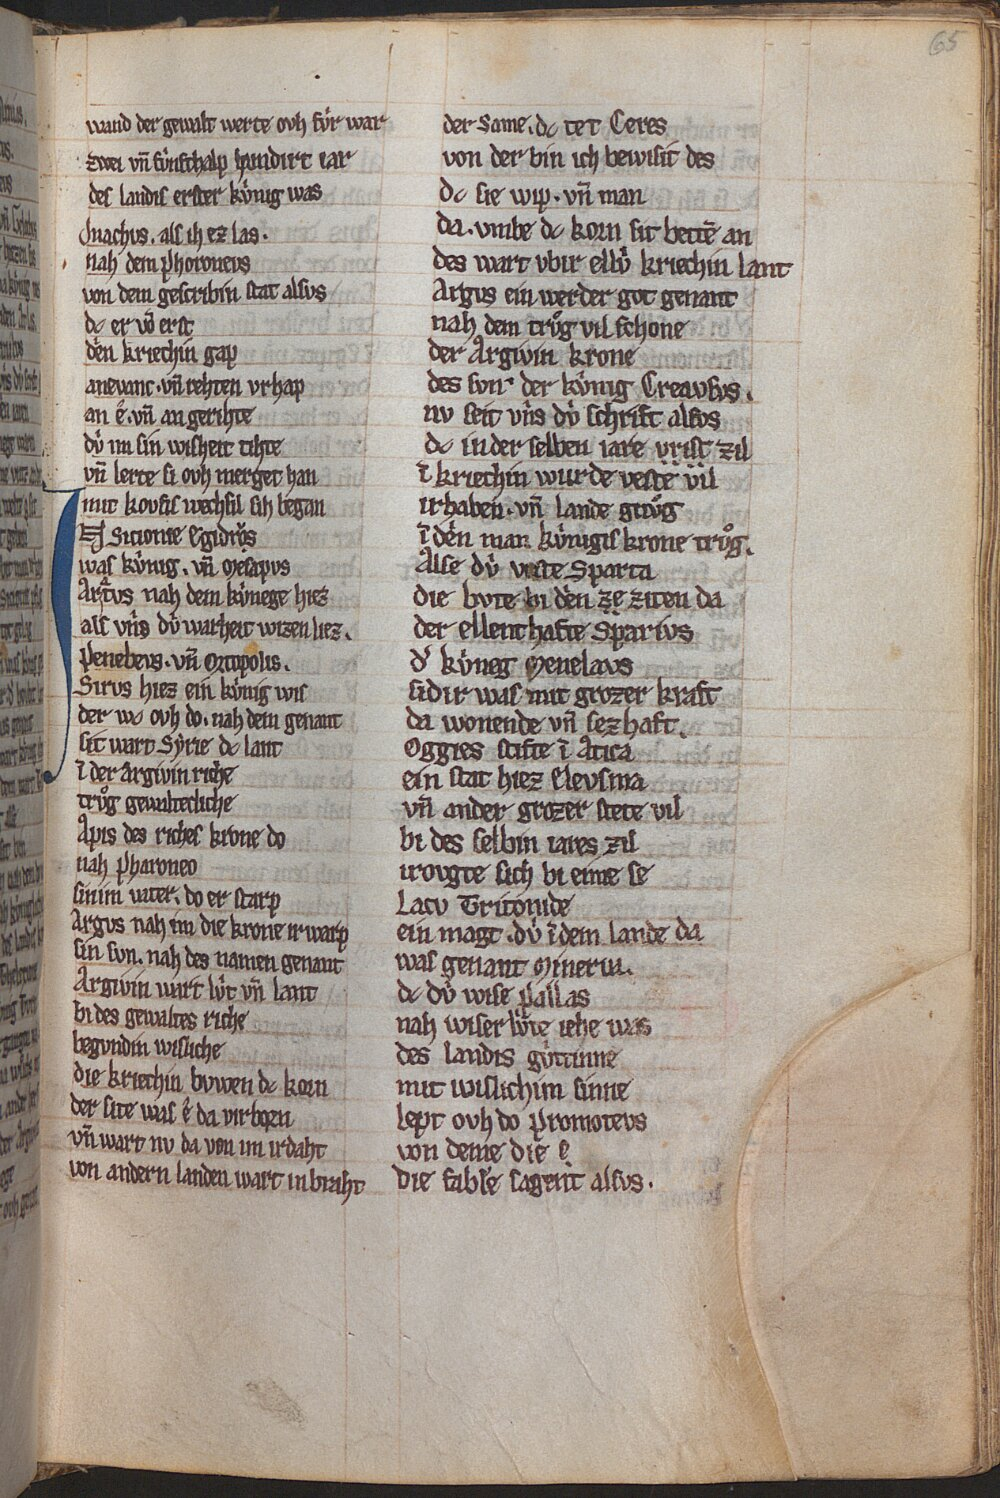 65
wand der gewalt werte ovh fv́r war
zwei vn̄ fv́nfchalp hundirt iar
des landis erster kv́nig was
Jnachvs. als ih ez las.
nah dem Phoronevs
von dem gescribin stat alsvs
dc er vō erst
dēn kriechin gap
anevanc. vn̄ rehten vrhap
an ê. vn̄ an gerihte
dv́ im sin wisheit tihte
vn̄ lerte si ovh merget han
mit kovfis wechsil sih began
Sicionie Egidrŏs
was kv́nig. vn̄ Mesapvs
nah dem kv́nege hiez
als vn̄s dv́ warheit wizen liez.
Penebevs. vn̄ Ortopolis.
Sirvs hiez ein kv́nig wis
der wc ovh do. nah dem genant
sit wart Sẏrie dc lant
ī der Argivin riche
trůg gewaltecliche
Apis des riches krone do
nah Pharoneo
sinim vater. do er starp
Argvs nah im die krone irwarp
sin svn. nah des namen genant
Argivin wart lv́t vn̄ lant
bi des gewaltes riche
begvndin wisliche
die kriechin bvwen dc korn
der site was ê da virborn
vn̄ wart nv da von im irdaht
von andern landen wart inbraht
der Same. dc tet Ceres
von der bin ich bewisit des
dc sie wip. vn̄ man
da. vmbe dc korn sit bettē an
des wart vbir ellv́ kriechin lant
Argvs ein werder got genant
nah dem trůg vil schone
der Argivin krone
des svn der kv́nig Creavsvs.
nv seit vn̄s dv́ schrift alsvs
dc in der selben iare vrist zil
ī kriechin wurde veste vil
irhaben. vn̄ lande gnůg
ī dēn man kv́nigis krone trůg.
Alse dv́ veste Sparta
die bvte bi dēn ze ziten da
der ellenthafte Sparivs
d' kv́neg Menelavs
sidir was mit grozer kraft
da wonende vn̄ sezhaft.
Oggies stifte ī Atica
ein stat hiez Elevsina
vn̄ ander grozer stete vil
bi des selbin iares zil
irovgte sich bi eime se
Lacv Tritonide
ein magt. dv́ ī dem lande da
was genant Minerua.
dc dv́ wise Pallas
nah wiser lv́te iehe was
des landis gv́ttinne
mit wislichim sinne
lept ovh do Promotevs
von deme die e
die fabile sagent alsvs.